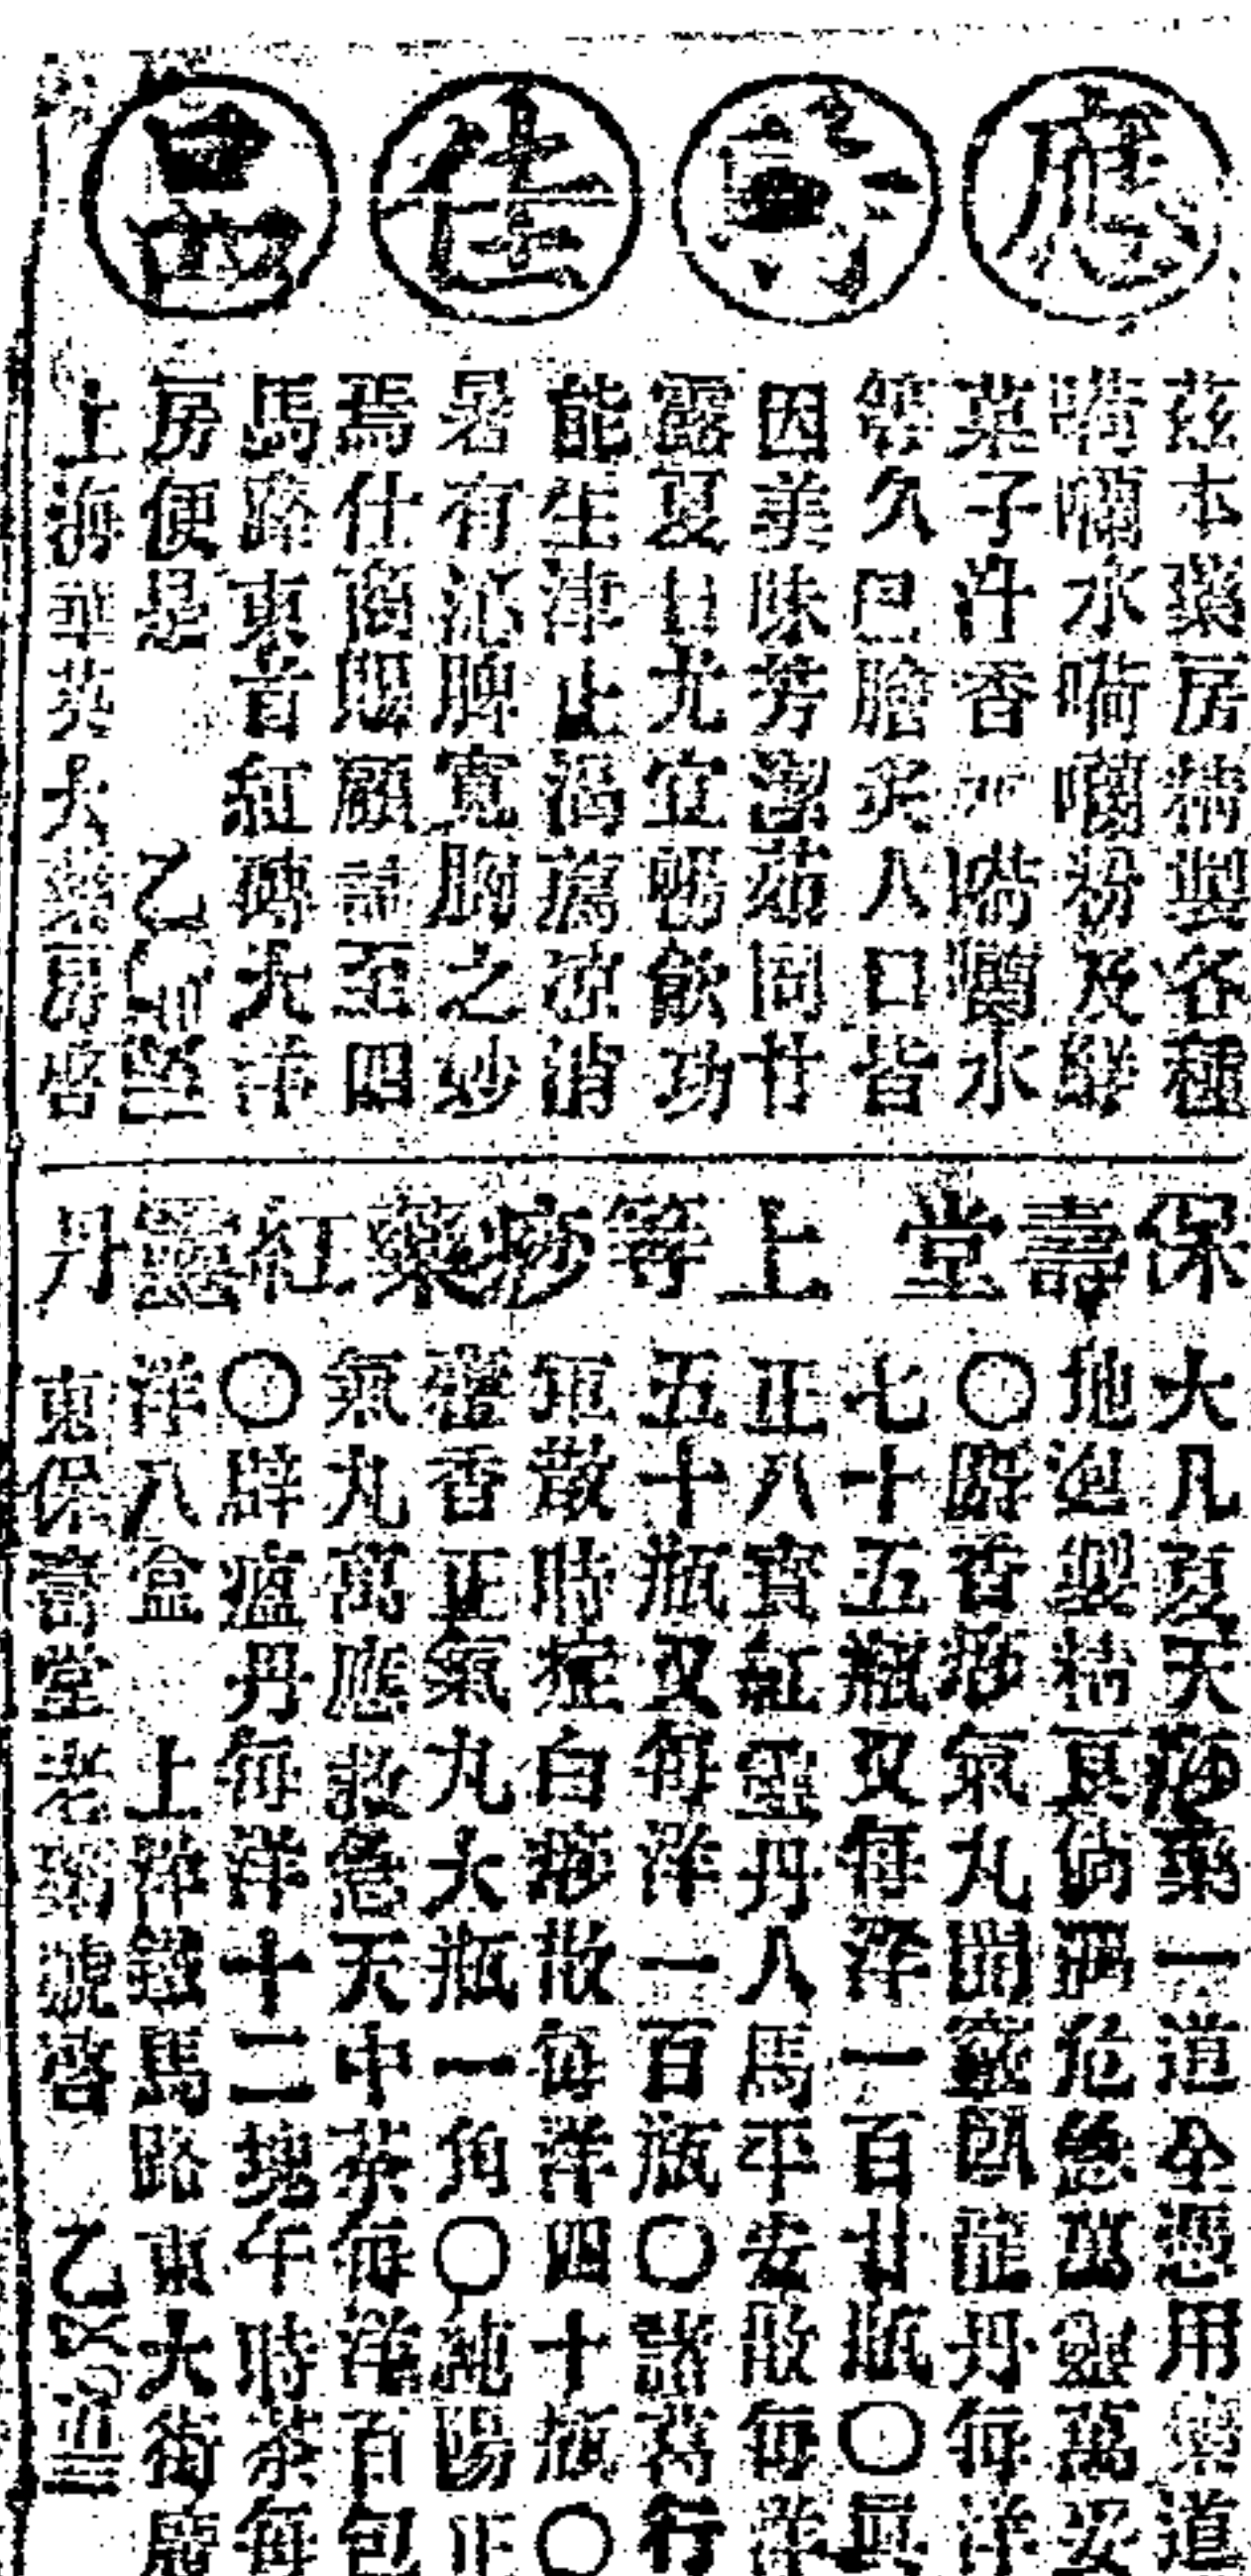 應時佳品
茲本藥房精製各種
嗬囒水嗬囒粉及鮮
菓子汁香嗬囒水
等久已膾炙人口皆
因美味芳潔茹同甘
露夏日尤宜暢飲功
能生津止渴滌涼消
暑有沁脾寬胸之妙
焉仕商賜顧請至四
馬路東首紅磚大洋
房便是 乙
上海華英大藥房啓
保壽堂 上等痧藥紅靈丹
大凡夏天痧藥一道全憑用實道
地泡製精良倘遇危急萬靈萬妥
〇辟香痧氣丸開竅卧龍丹每洋
七十五瓶双每洋一百廿瓶〇眞
正八寶紅靈丹人馬平安散每洋
五十瓶双每洋一百瓶〇諸葛行
軍散時症白痧散每洋四十瓶〇
藿香正氣丸大瓶一角〇純陽正
氣丸萬應救急天中茶每洋百包
〇辟瘟丹每洋十二塊午時茶每
洋八盒 上洋鐵馬路東大街
東保壽堂老藥號啓 乙